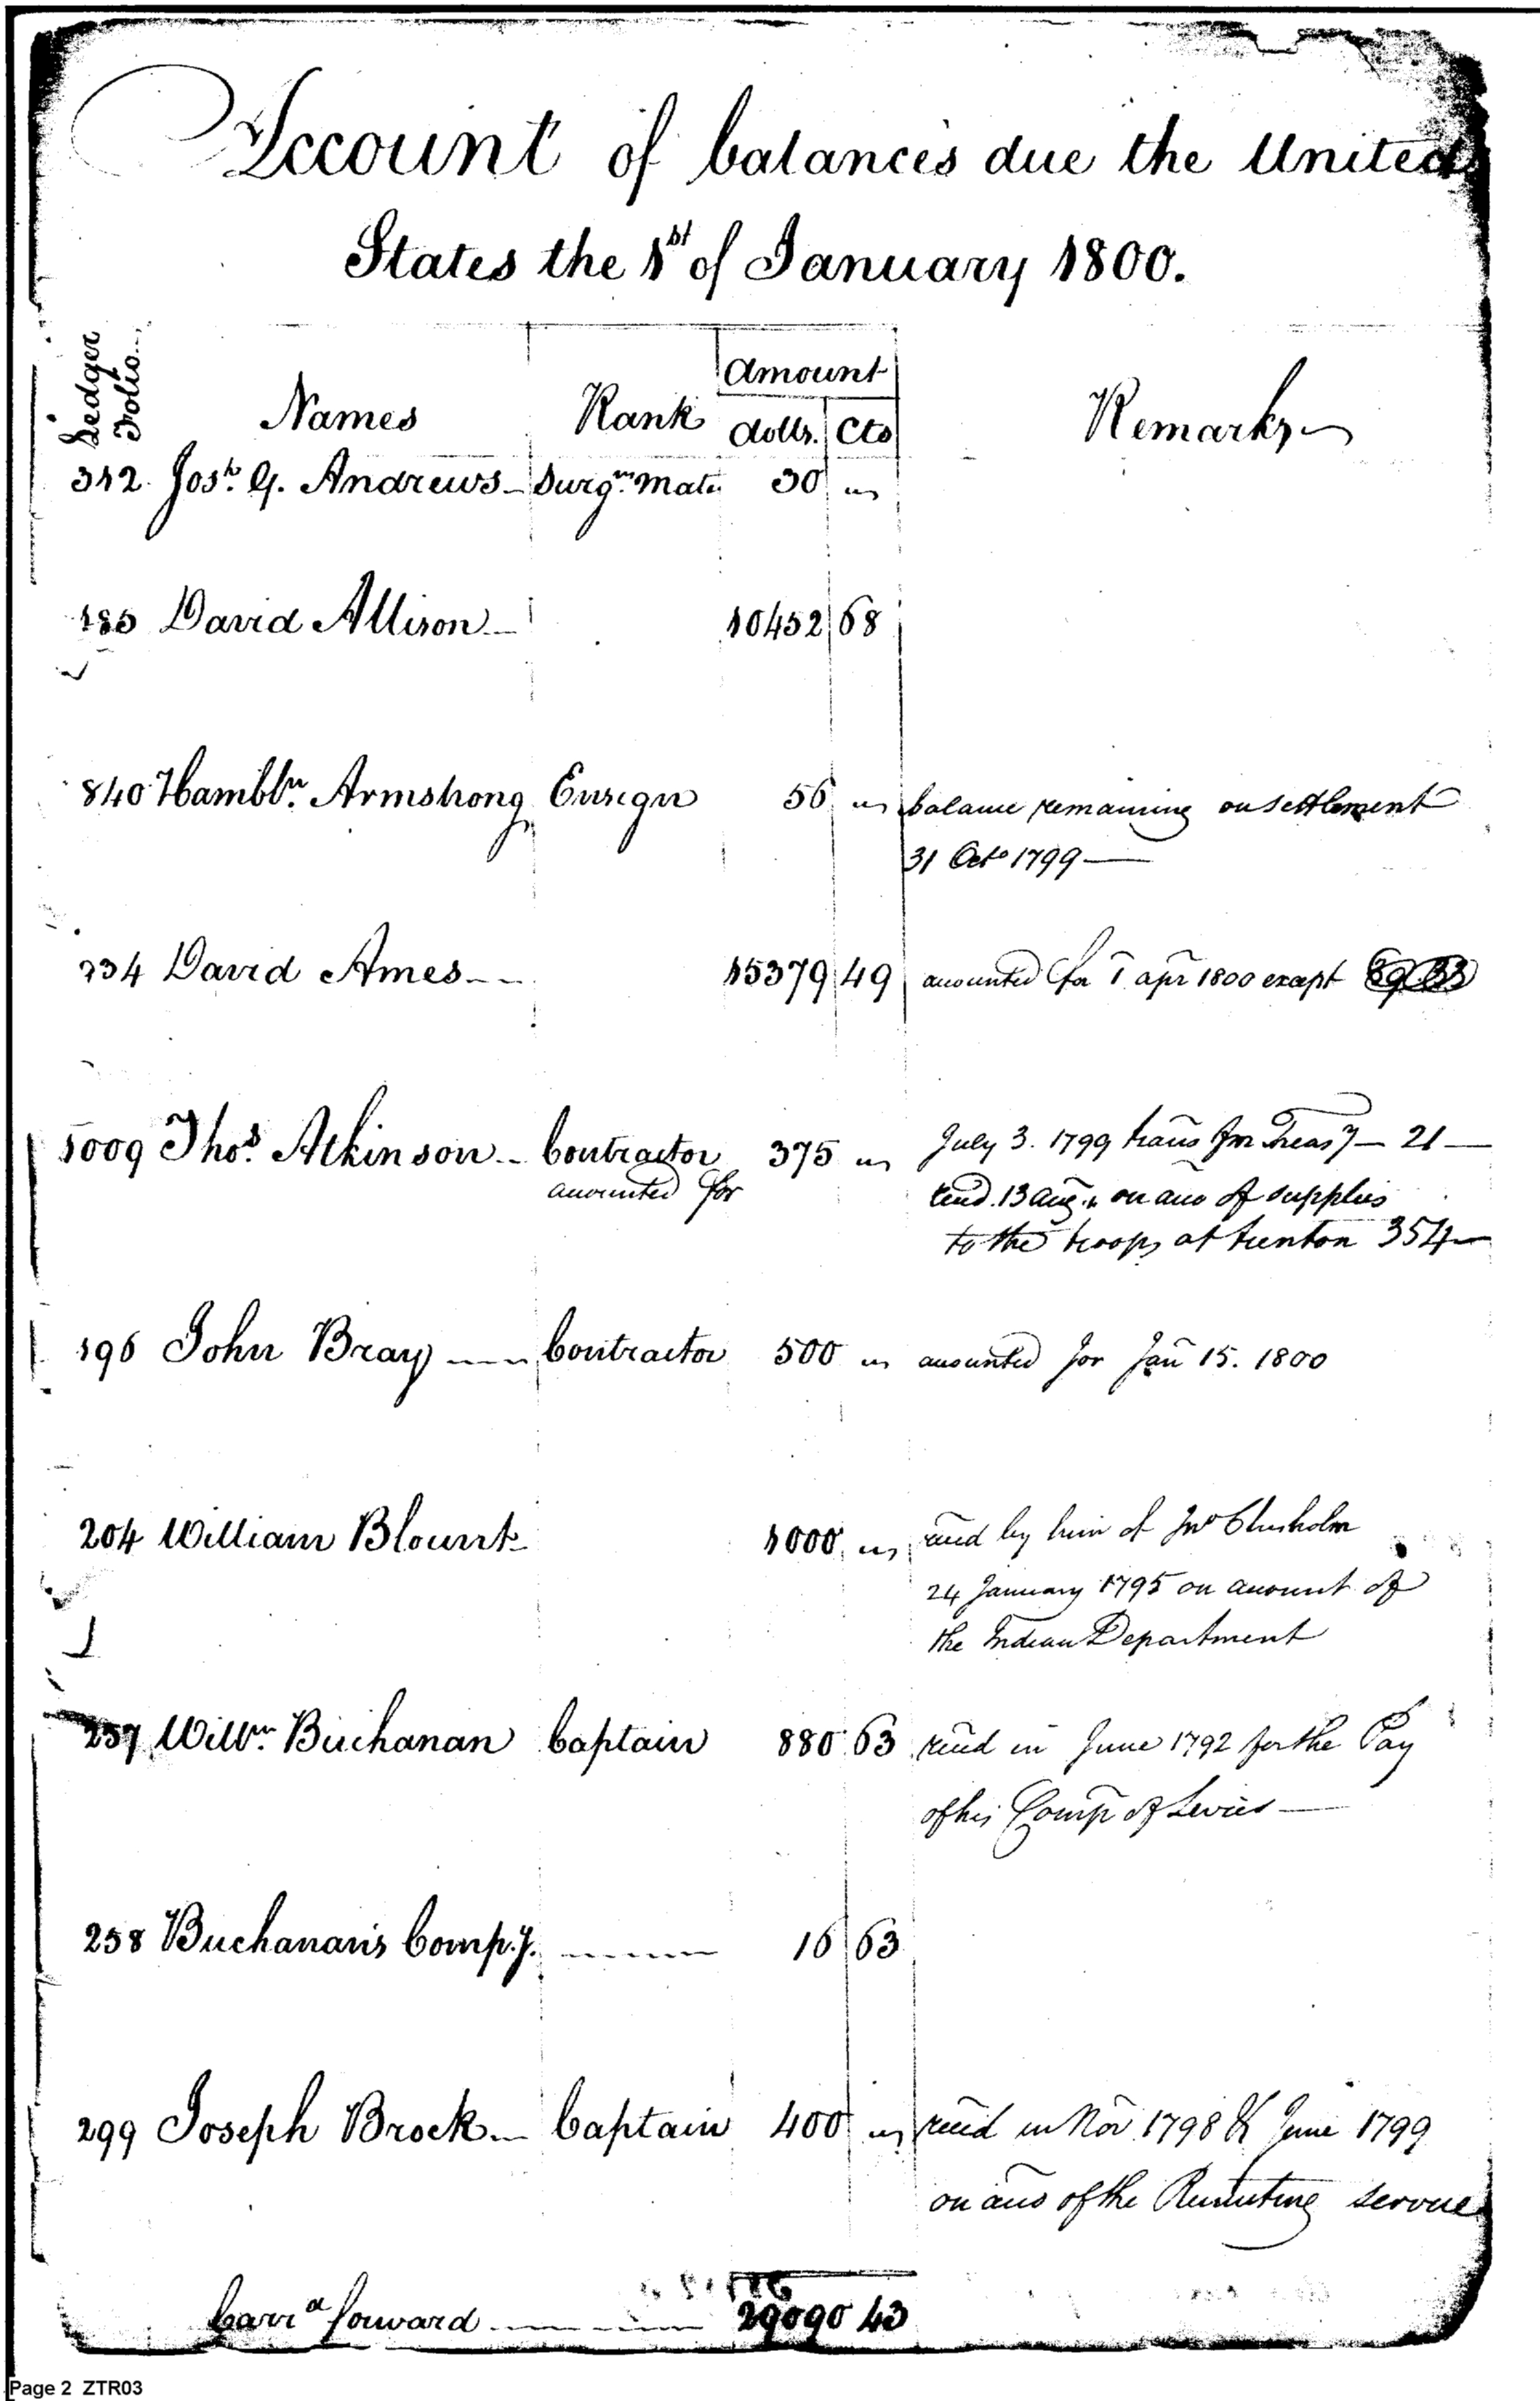 Account of balances due the United
States the 1st of January 1800.
Ledger Folio
Names Rank Amount Remarks
dolls. Cts
312 Josh. G. Andrews Surgns. Mate 30 "
185 David Allison 10452 68
840 Hambln. Armstrong Ensign 56 " balance remaining on settlement
31 Octo 1799
234 David Ames 15379 49 accounted for 1 apr 1800 except
1009 Thos. Atkinson Contractor 375 " July 3. 1799 trans fm Treasy — 21 —
accounted for recd. 13 Aug. " on acco of supplies
to the troops at trenton 354 —
196 John Bray Contractor 500 " accounted for Jan 15. 1800
204 William Blount 1000 " recd by him of Jno Chisholm
24 January 1795 on account of
the Indian Department
257 Willm. Buchanan Captain 880 63 recd in June 1792 for the Pay
of his Comp of Levies —
258 Buchanan's Compy. 16 63
299 Joseph Brock Captain 400 " recd in Nov 1798 & June 1799
on acco of the Recruiting service
Carrd forward 29090 43
Page 2 ZTR03